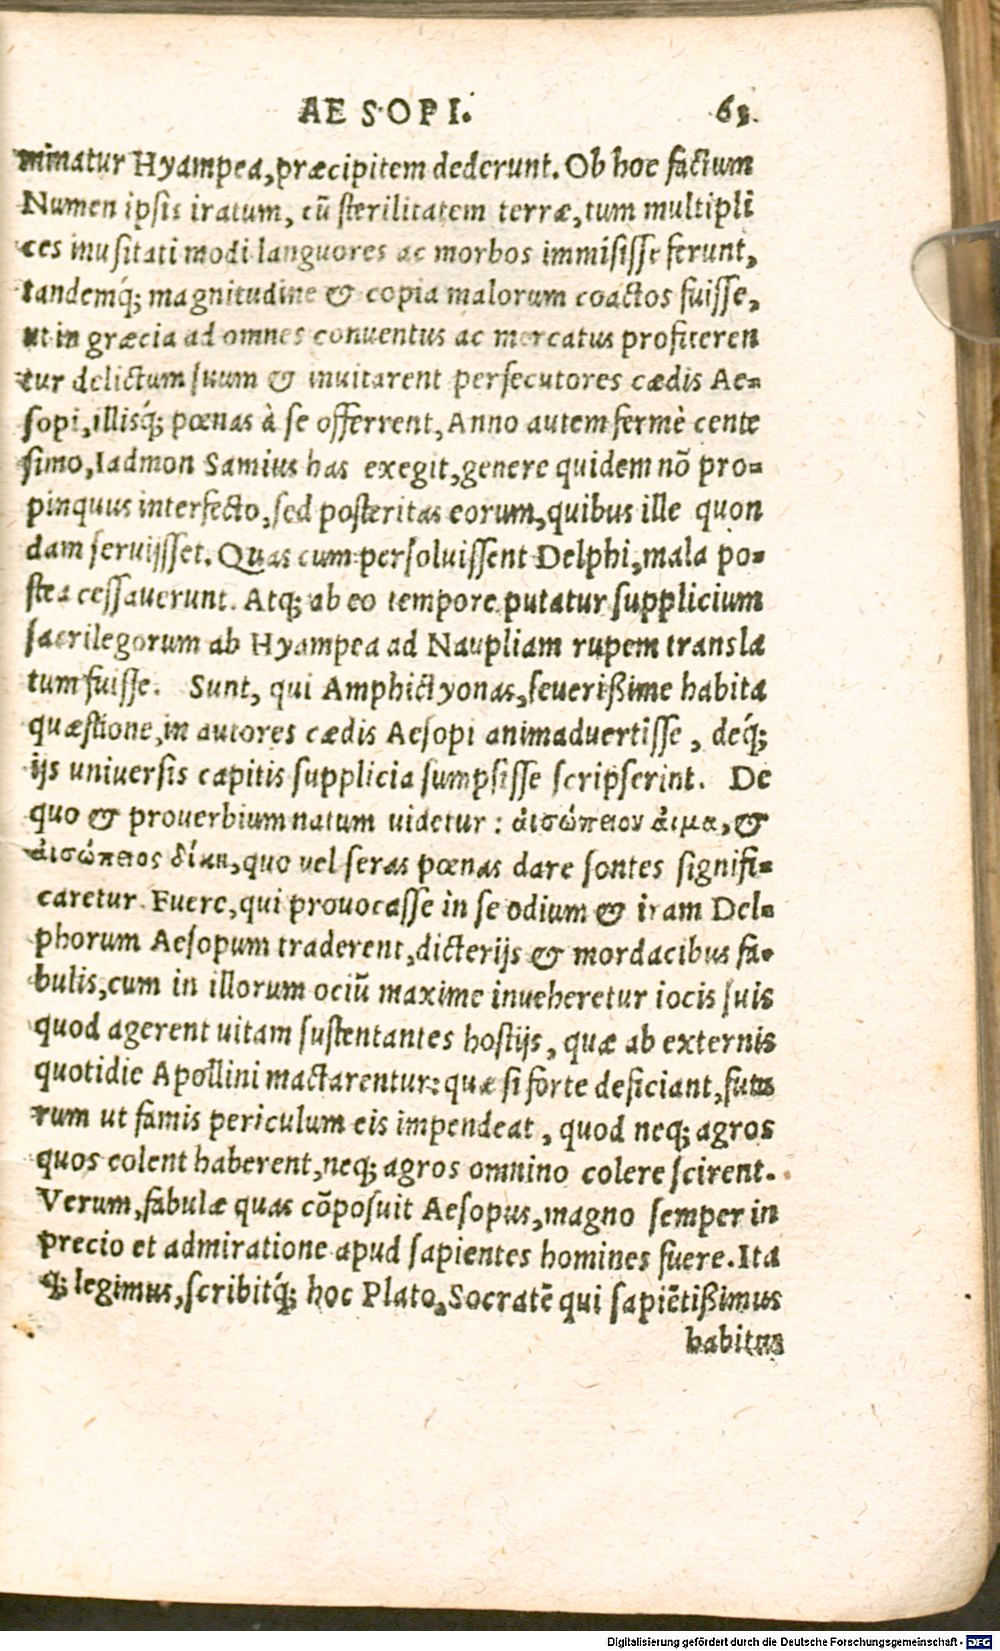 AESOPI. 63
minatur Hyampea, præcipitem dederunt. Ob hoc factum
Numen ipsis iratum, cũ sterilitatem terræ, tum multipli
ces inusitati modi languores ac morbos immisisse ferunt,
tandemq́; magnitudine & copia malorum coactos fuisse,
ut in græcia ad omnes conuentus ac mercatus profiteren
tur delictum suum & inuitarent persecutores cædis Ae-
sopi, illisq́; pœnas à se offerrent, Anno autem fermè cente
simo, Iadmon Samius has exegit, genere quidem nõ pro-
pinquus interfecto, sed posteritas eorum, quibus ille quon
dam seruijsset. Quas cum persoluissent Delphi, mala po-
stea cessauerunt. Atq; ab eo tempore putatur supplicium
sacrilegorum ab Hyampea ad Naupliam rupem transla
tum fuisse. Sunt, qui Amphictyonas, seuerißime habita
quæstione, in autores cædis Aesopi animaduertisse, deq́;
ijs uniuersis capitis supplicia sumpsisse scripserint. De
quo & prouerbium natum uidetur: ἀισώπειον ἀιμα, &
ἀισώπειος δίκη, quo uel seras pœnas dare sontes signifi-
caretur. Fuere, qui prouocasse in se odium & iram Del-
phorum Aesopum traderent, dicterijs & mordacibus fa-
bulis, cum in illorum ociũ maxime inueheretur iocis suis
quod agerent uitam sustentantes hostijs, quæ ab externis
quotidie Apollini mactarentur: quæ si forte deficiant, futu
rum ut famis periculum eis impendeat, quod neq; agros
quos colent haberent, neq; agros omnino colere scirent.
Verum, fabulæ quas cõposuit Aesopus, magno semper in
precio et admiratione apud sapientes homines fuere. Ita
q; legimus, scribitq́; hoc Plato, Socratẽ qui sapiẽtißimus
habitus
Digitalisierung gefördert durch die Deutsche Forschungsgemeinschaft - DFG